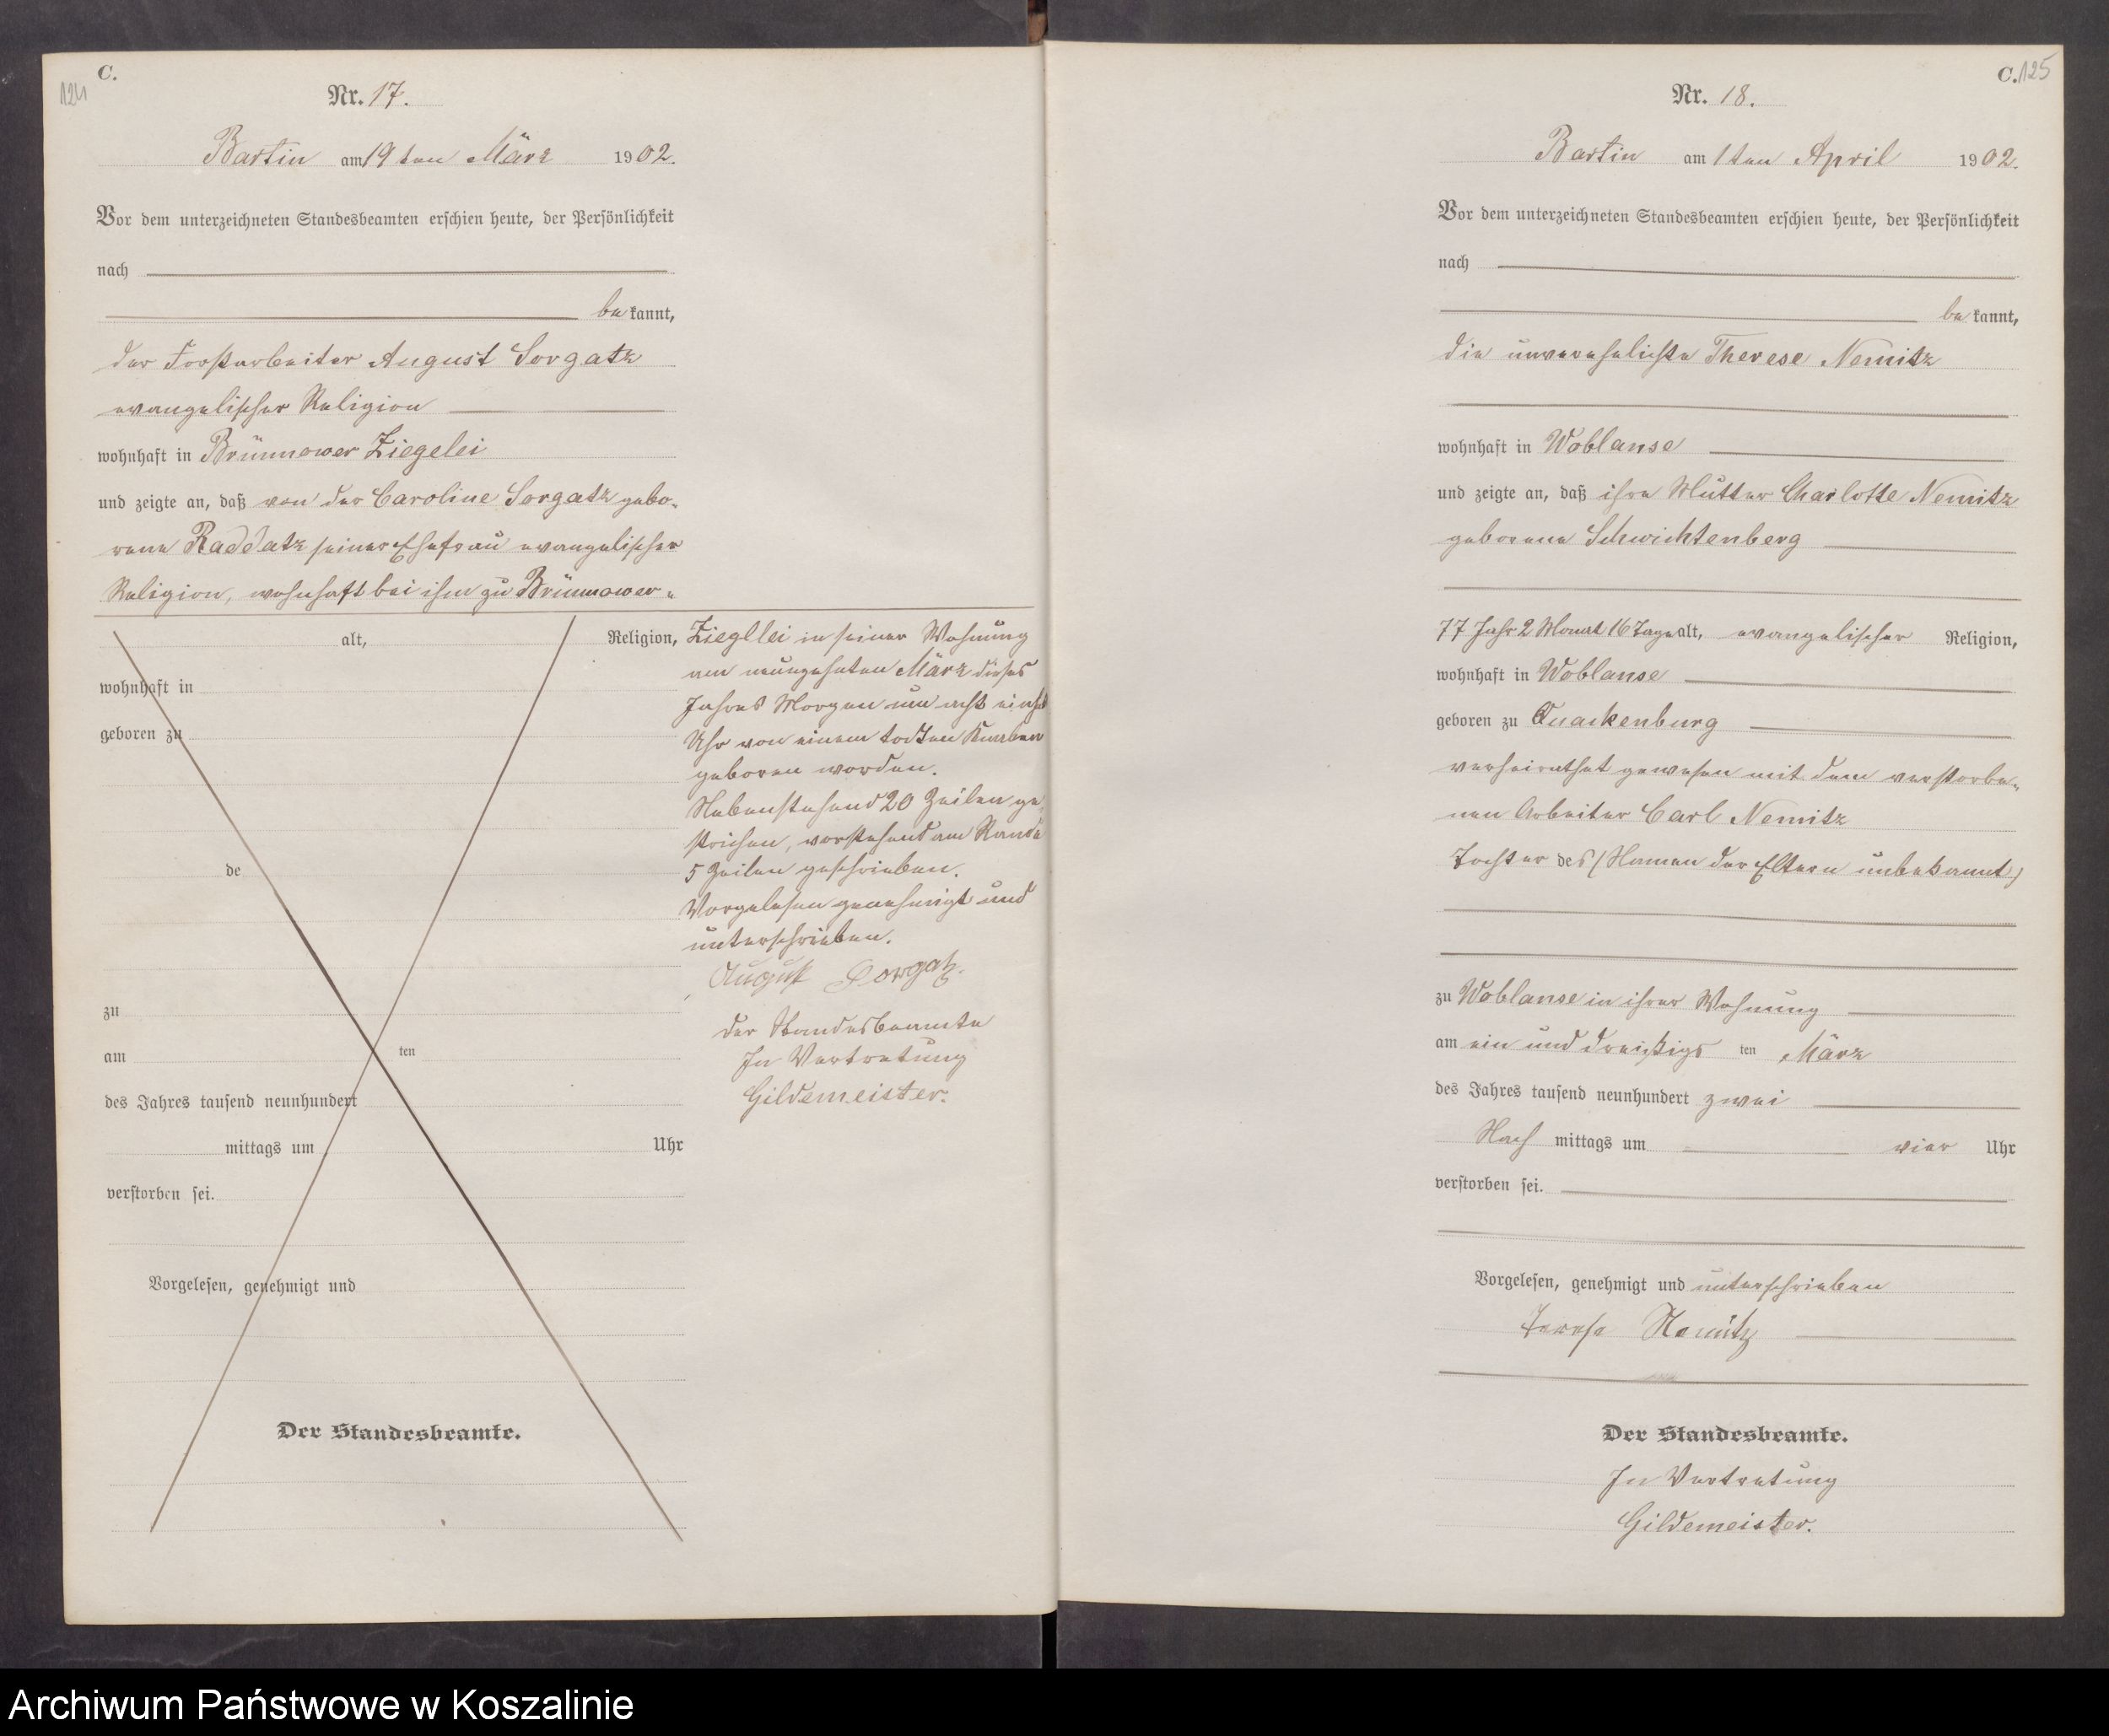 124
C.
Nr. 17.
Bartin am 19 ten März 1902.
Vor dem unterzeichneten Standesbeamten erschien heute, der Persönlichkeit
nach
be kannt,
der Forstarbeiter August Sorgatz
evangelischer Religion
wohnhaft in Brünnower Ziegelei
und zeigte an, daß von der Caroline Sorgatz gebo-
rene Raddatz seiner Ehefrau evangelischer
Religion, wohnhaft bei ihm zu Brünnower-
alt, Religion,
wohnhaft in
geboren zu
de
zu
am ten
des Jahres tausend neunhundert
mittags um Uhr
verstorben sei.
Vorgelesen, genehmigt und
Der Standesbeamte.
Ziegllei in seiner Wohnung
am neunzehnten März dieses
Jahres Morgen um acht einhalb
Uhr von einem todten Knaben
geboren worden.
Nebenstehend 20 Zeilen ge-
strichen, vorstehend am Rande
5 Zeilen geschrieben.
Vorgelesen genehmigt und
unterschrieben.
August Sorgatz.
der Standesbeamte
In Vertretung
Gildemeister.
C. 125
Nr. 18.
Bartin am 1 ten April 1902.
Vor dem unterzeichneten Standesbeamten erschien heute, der Persönlichkeit
nach
be kannt,
die unverehelichte Therese Nemitz
wohnhaft in Woblanse
und zeigte an, daß ihre Mutter Charlotte Nemitz
geborene Schwichtenberg
77 Jahr 2 Monat 16 Tage alt, evangelischer Religion,
wohnhaft in Woblanse
geboren zu Quackenburg
verheirathet gewesen mit dem verstorbe-
nen Arbeiter Carl Nemitz
Tochter des (Namen der Eltern unbekannt)
zu Woblanse in ihrer Wohnung
am ein und dreißigs ten März
des Jahres tausend neunhundert zwei
Nach mittags um vier Uhr
verstorben sei.
Vorgelesen, genehmigt und unterschrieben
Terese Nemitz
Der Standesbeamte.
In Vertretung
Gildemeister.
Archiwum Państwowe w Koszalinie